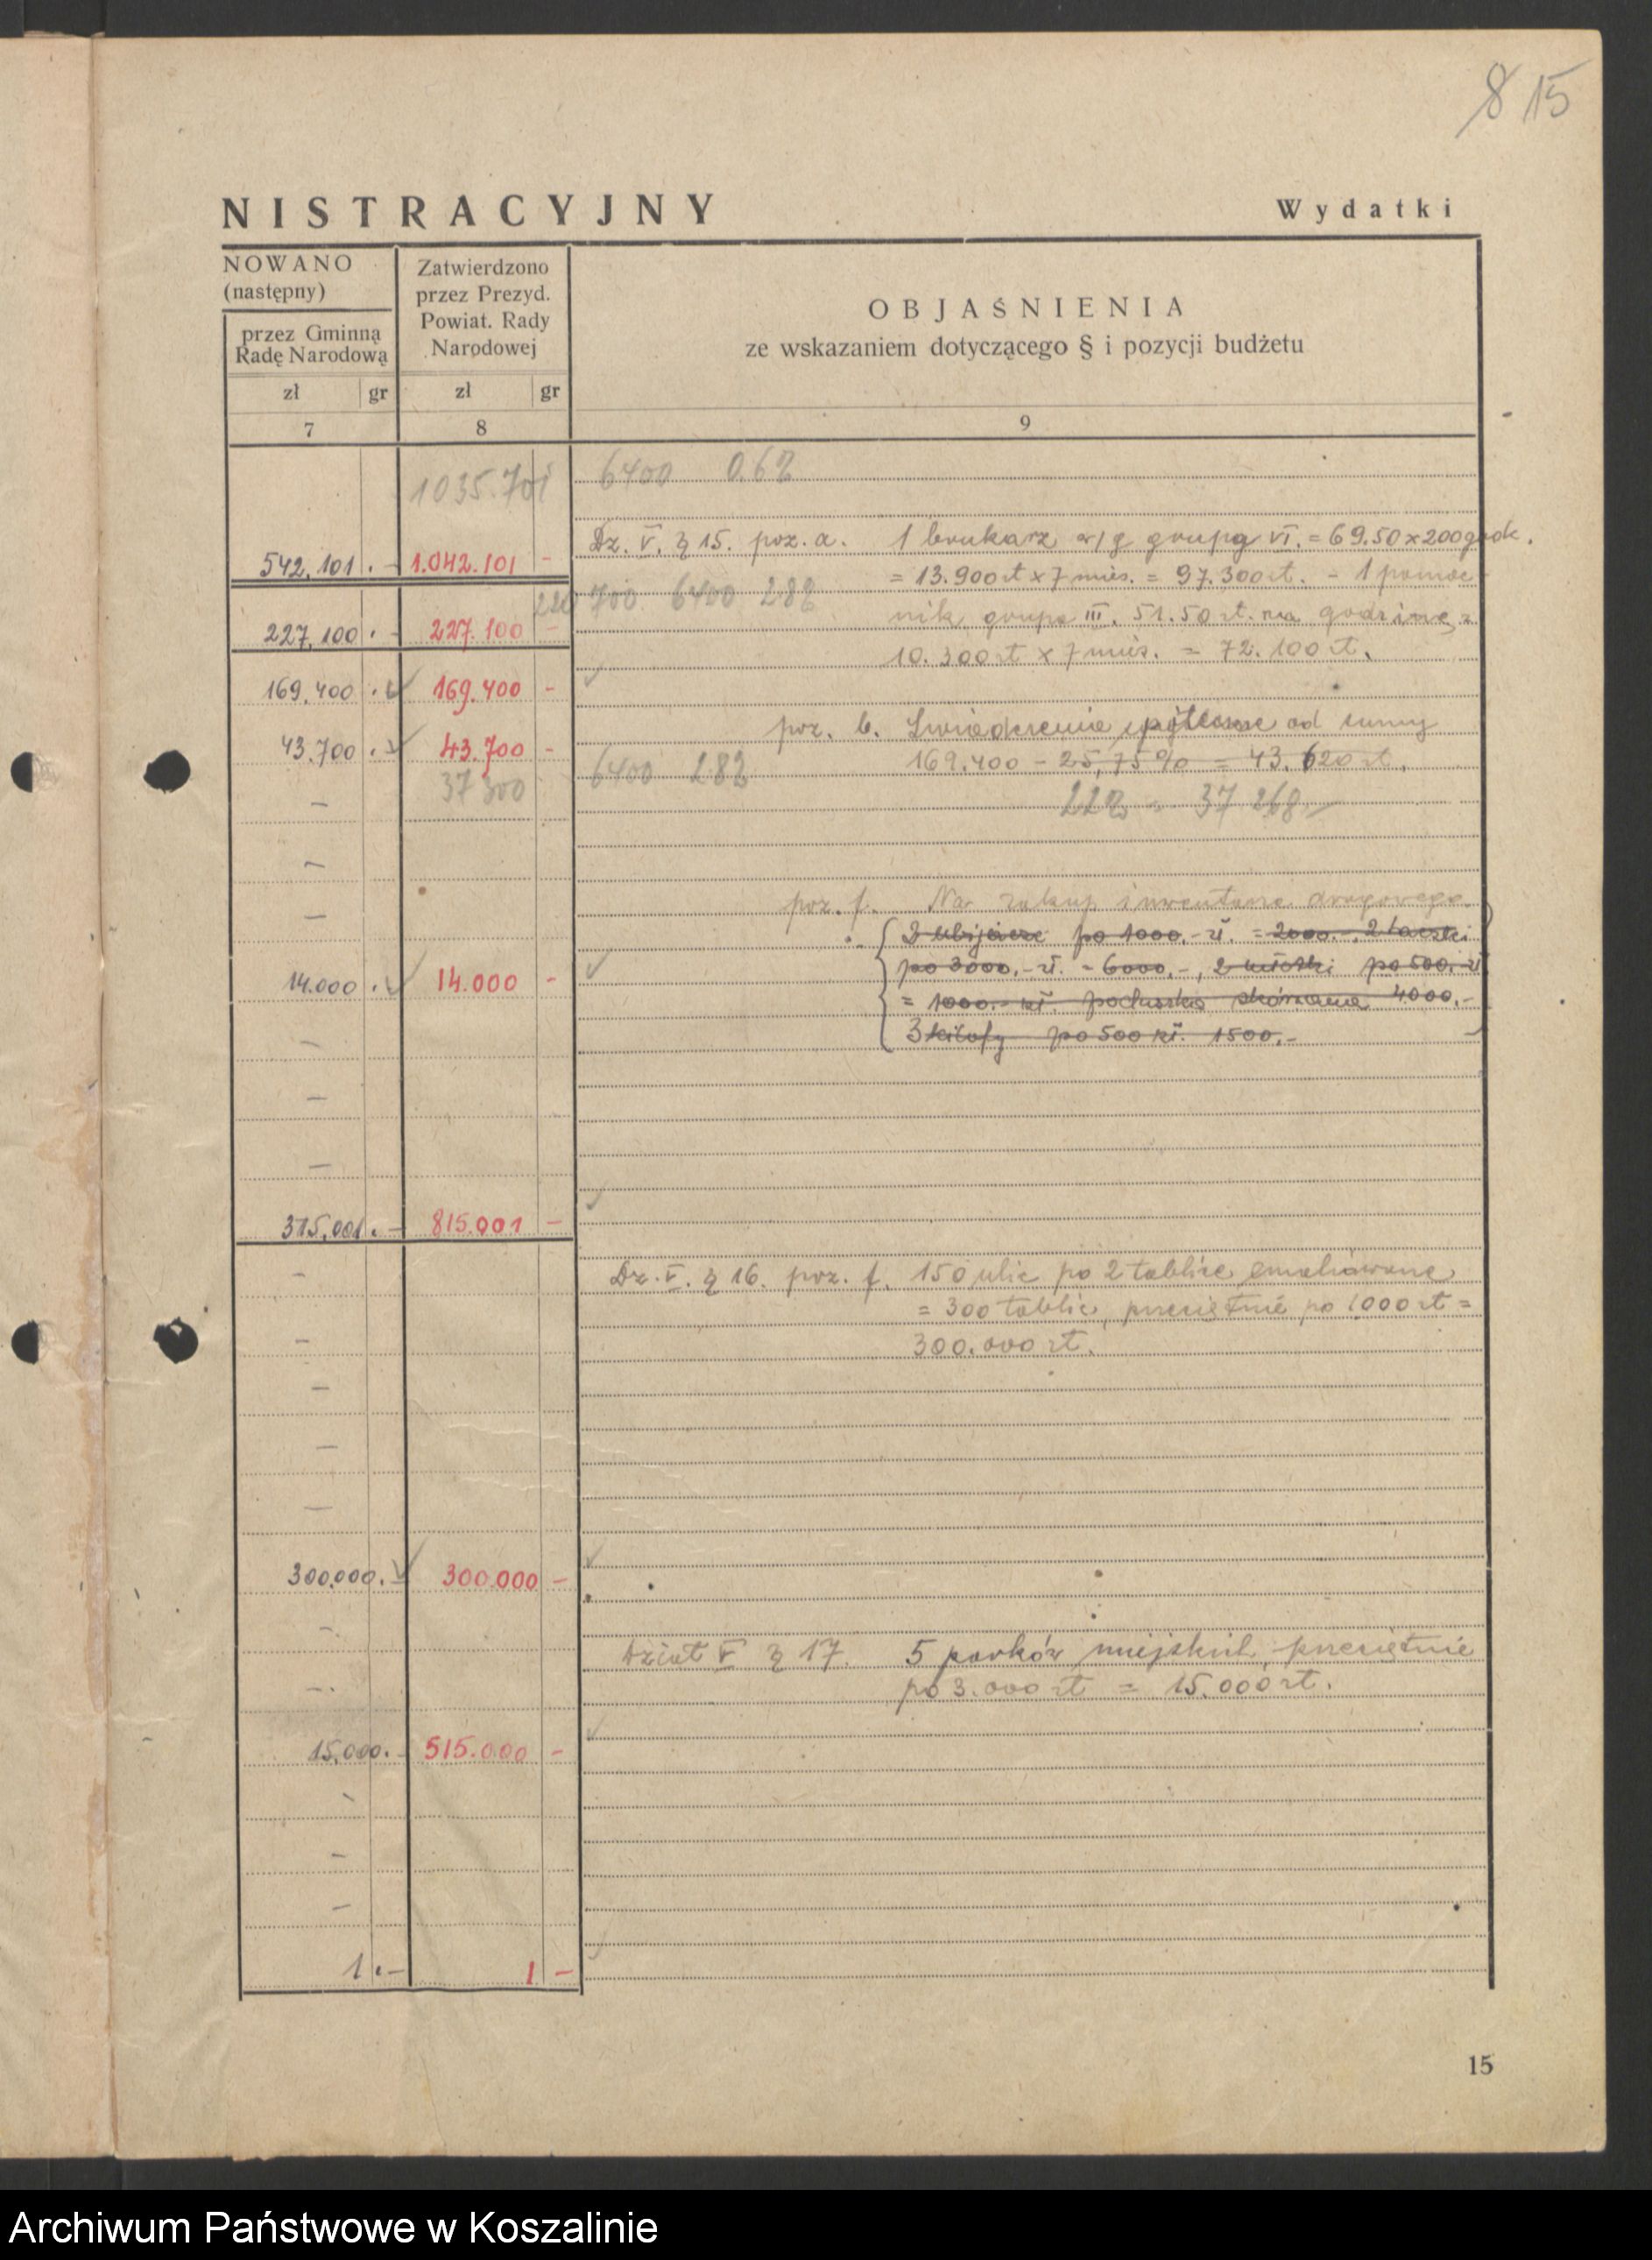 8 15
NISTRACYJNY
Wydatki
NOWANO
(następny)
przez Gminną
Radę Narodową
zł gr
7
Zatwierdzono
przez Prezyd.
Powiat. Rady
Narodowej
zł gr
8
OBJAŚNIENIA
ze wskazaniem dotyczącego § i pozycji budżetu
9
1035.701 6400
Dz. V. § 15. poz. a. 1 brukarz w/g grupy VI. = 69.50 x 200 godz.
542.101.- 1.042.101 -
= 13.900 zł x 7 mies. = 97.300 zł. - 1 pomoc-
700 6400 282
227.100.- 227.100 - nik grupa III. 51.50 zł. na godzinę =
10.300 zł x 7 mies. = 72.100 zł.
169.400.- 169.400 -
poz. b. Świadczenie społeczne od sumy
43.700.- 43.700 -
6400 282 169.400 - 25,75% = 43.620 zł.
- 37 300
22% = 37 268
-
poz. f. Na zakup inwentarza drogowego
-
2 ubijacze po 1000.- zł. = 2000.-, 2 taczki
po 3000.- zł. = 6000.-, 2 młotki po 500.- zł
14.000.- 14.000 -
= 1000.- zł. poduszka skórzana 4000.-
3 kilofy po 500 zł. 1500.-
-
-
-
315.001.- 815.001 -
Dz. V. § 16. poz. f. 150 ulic po 2 tablice emaliowane
-
= 300 tablic, przeciętnie po 1000 zł =
-
300.000 zł.
-
-
-
300.000.- 300.000 -
-
Dział V § 17. 5 parków miejskich, przeciętnie
po 3.000 zł = 15.000 zł.
-
15.000.- 515.000 -
-
-
-
1.- 1 -
15
Archiwum Państwowe w Koszalinie